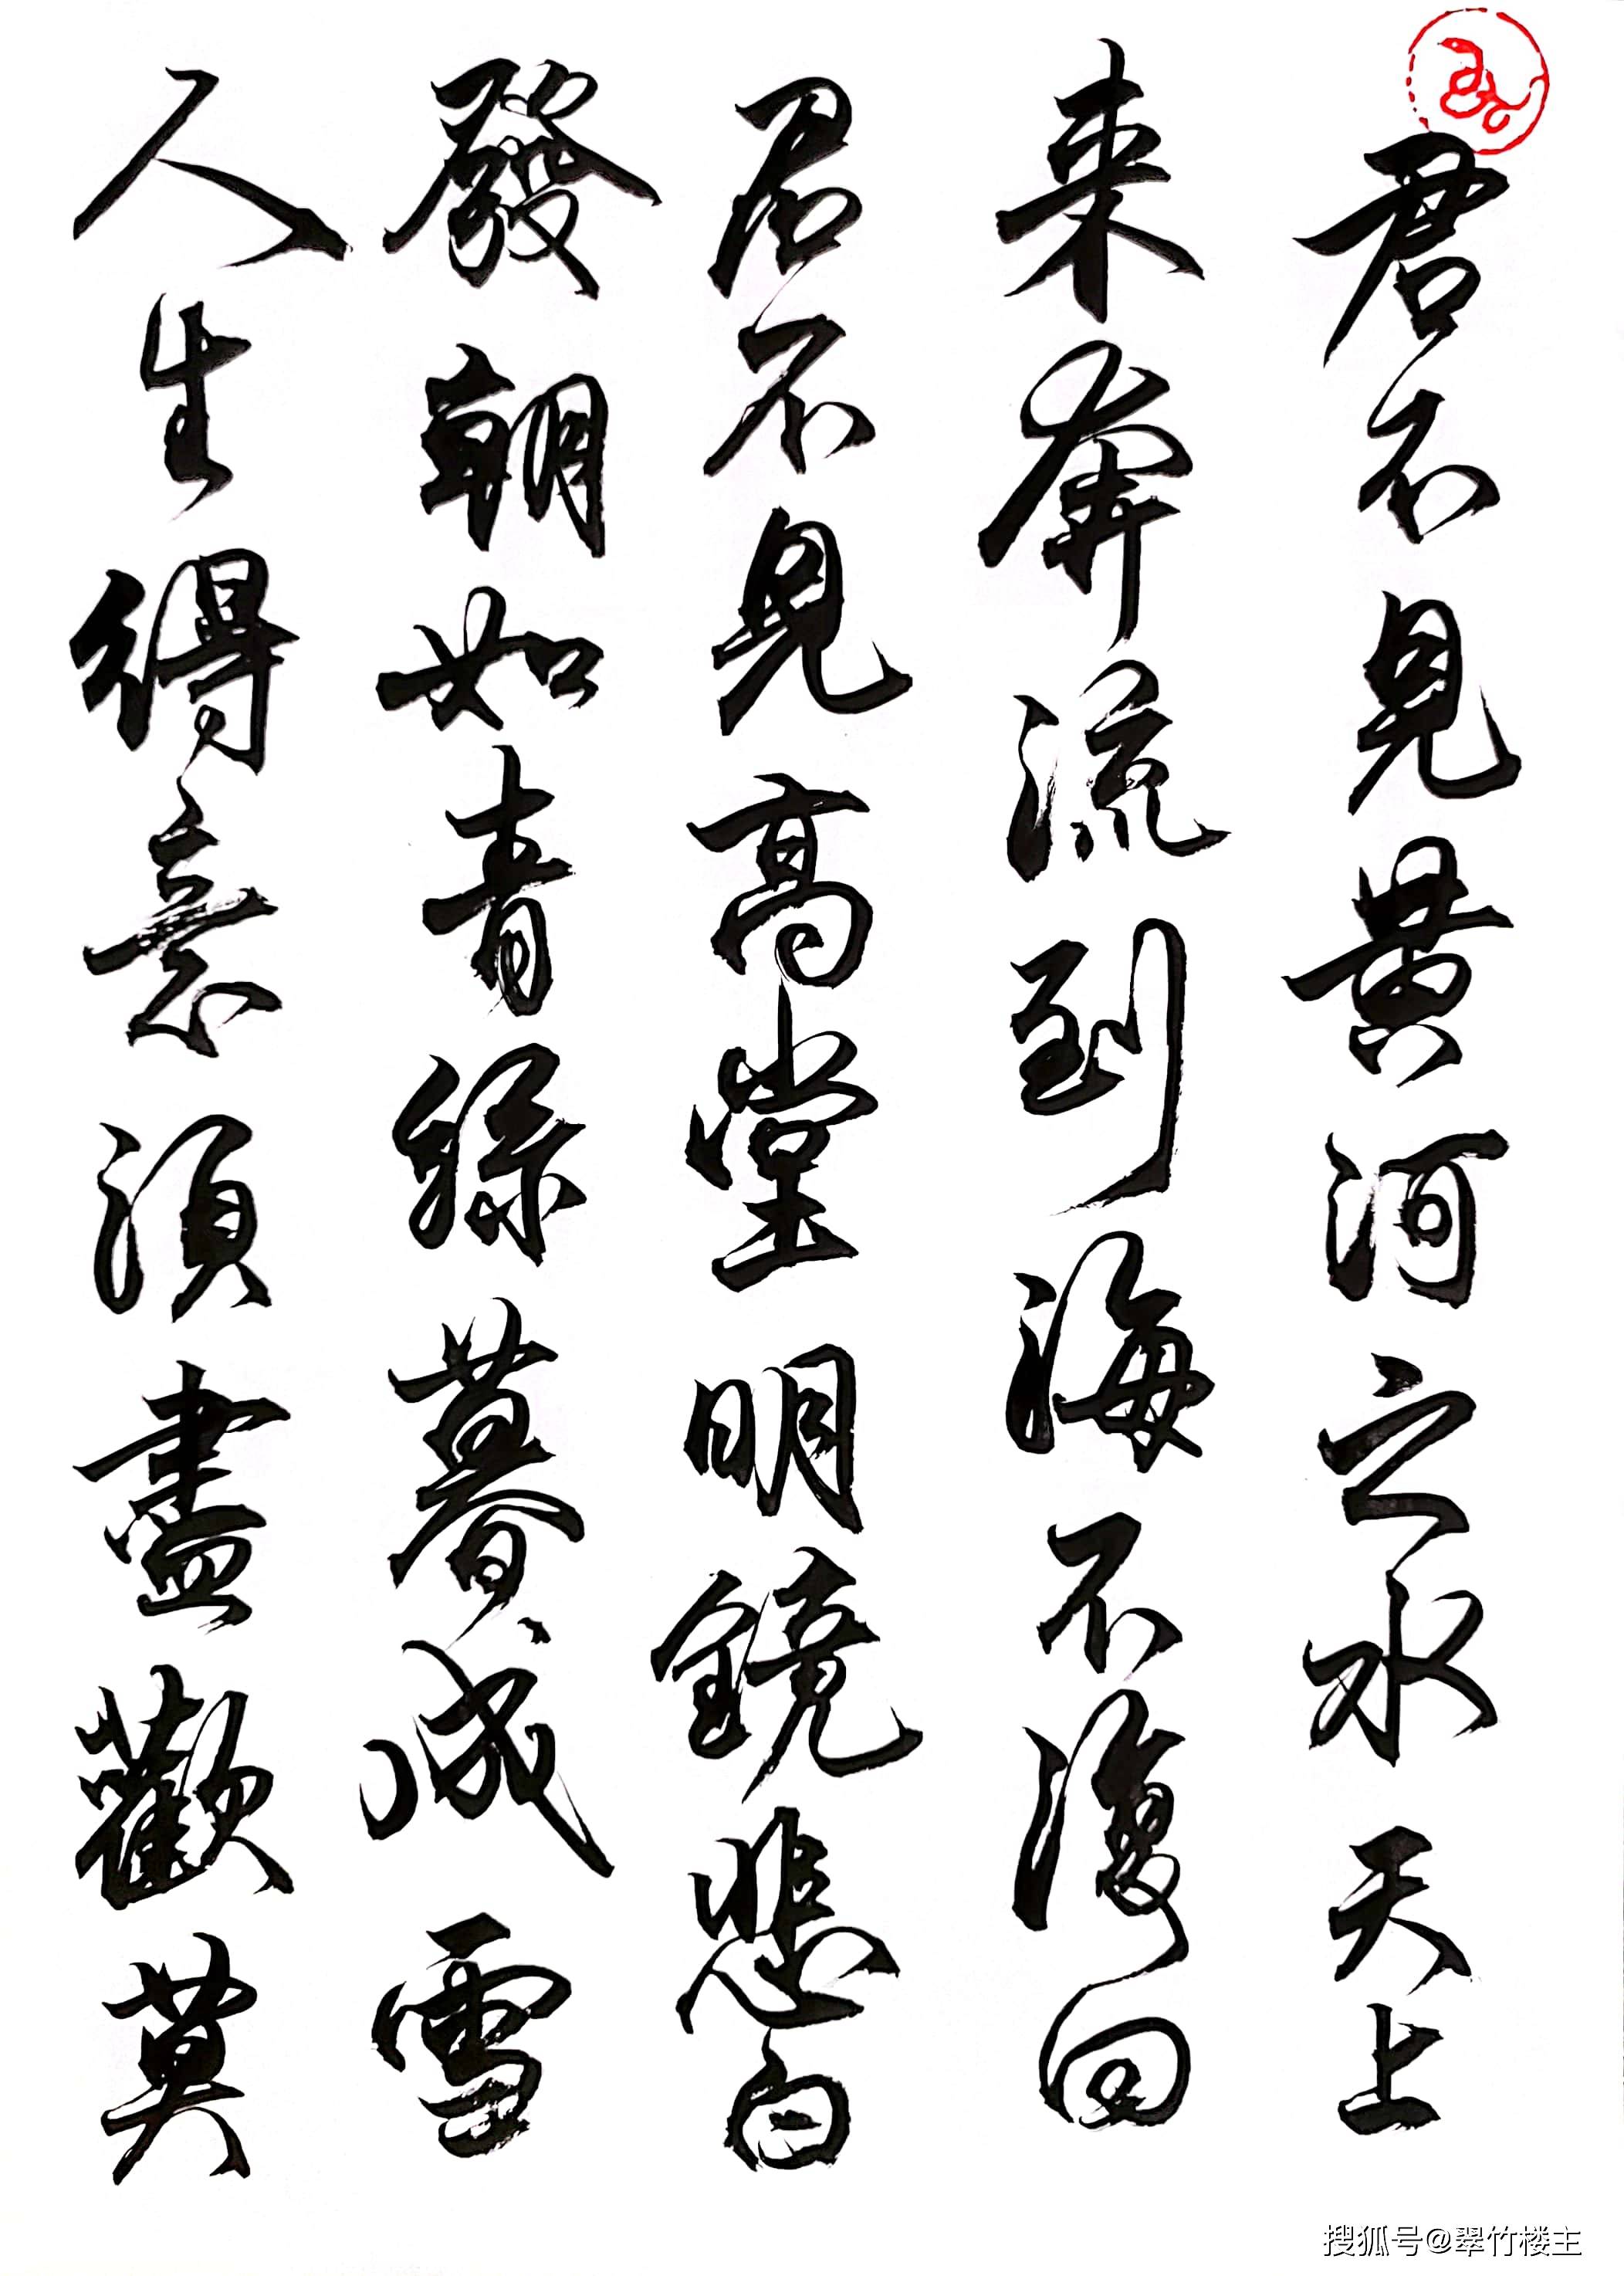 君不見黄河之水天上
来奔流到海不復回
君不見高堂明鏡悲白
發朝如青絲暮成雪
人生得意須盡歡莫
搜狐号@翠竹楼主